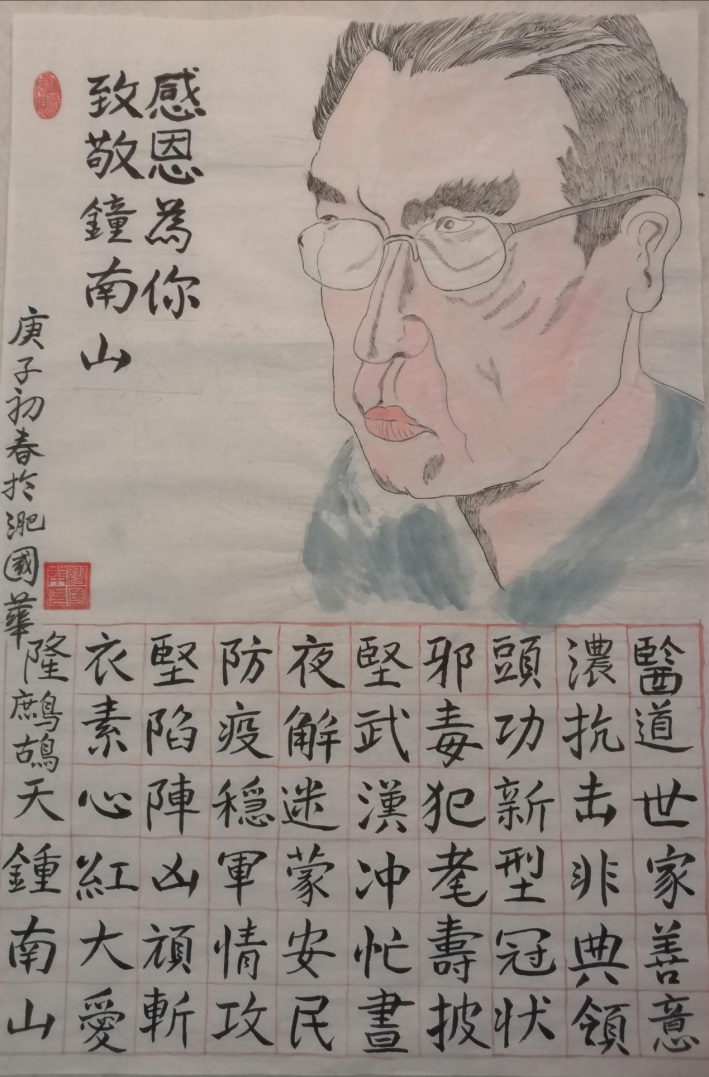 感恩為你
致敬鐘南山
庚子初春於淝國華
醫道世家善意
濃抗击非典領
頭功新型冠状
邪毒犯耄壽披
堅武漢冲忙晝
夜解迷蒙安民
防疫穩軍情攻
堅陷陣凶頑斬
衣素心紅大愛
隆鷓鴣天鍾南山